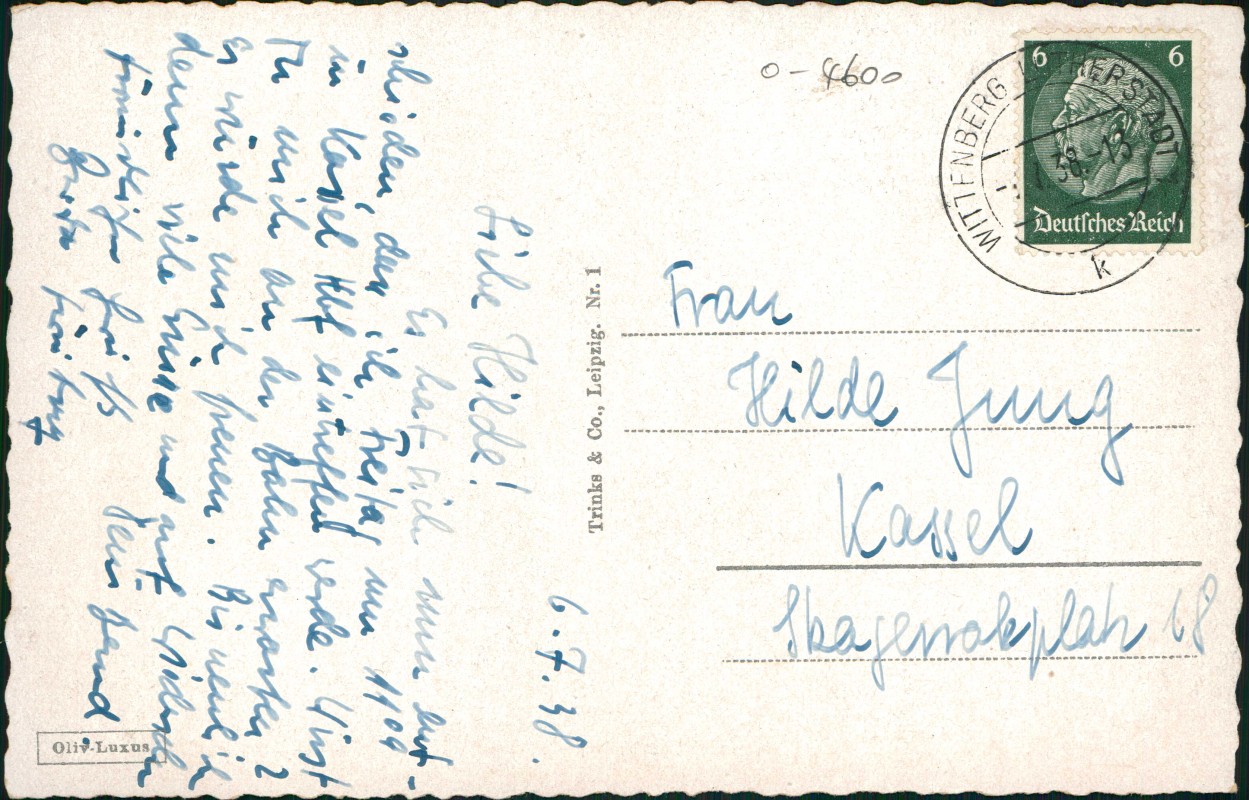 6.7.38.
Liebe Hilde!
Es hat sich nun ent-
schieden, dass ich Freitag um 11 04
in Kassel Hbf eintreffen werde. Wirst
Du mich an der Bahn erwarten?
Es würde mich freuen. Bis
denn viele Grüsse und auf Wiedersehen
Dein
Gerda
o-4600
6 6
Deutsches Reich
WITTENBERG LUTHERSTADT
38.-13
k
Frau
Hilde Jung
Kassel
Skagerrakplatz 18
Trinks & Co., Leipzig. Nr. 1
Oliv-Luxus